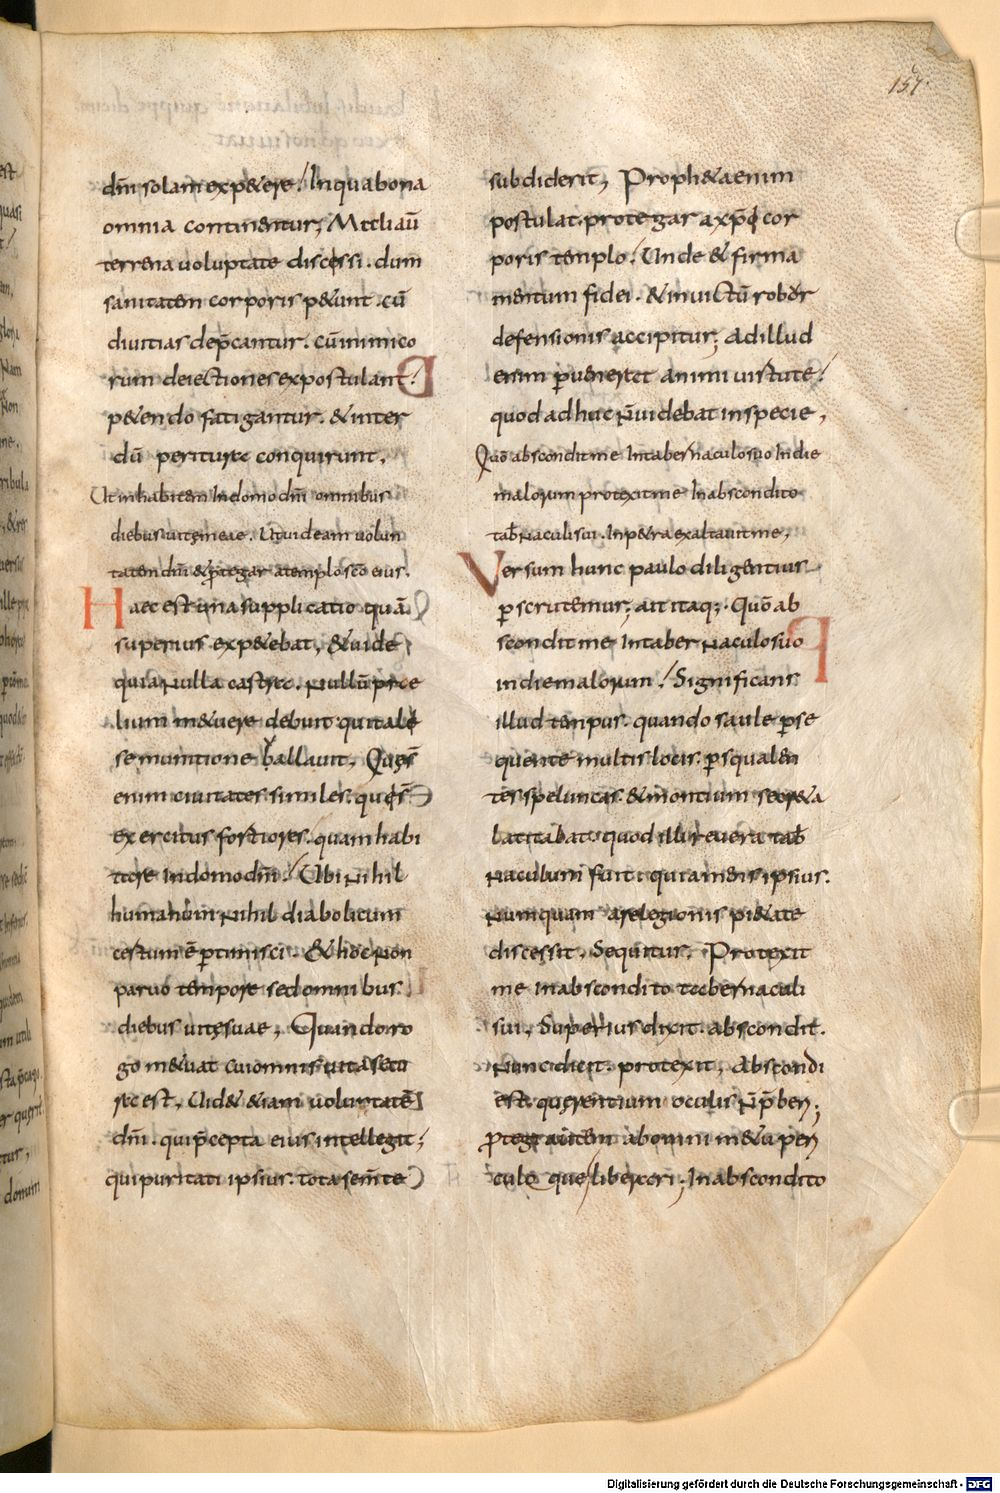 157.
dn̄i solam exp&ere! In qua bona
omnia continentur; Mttli aū
terrena uoluptate discessi. dum
sanitatem corporis p&unt. cū
diuitias dep̄cantur. cū inimico
rum deiectiones expostulant!
p&endo fatigantur. & inter
dū peritura conquirunt,
Ut inhabitem In domo dn̄i omnibus
diebus uitę meae. Ut uideam uolun
tatem dn̄i & protegar a templo sc̄o eius.
Haec est una supplicatio quā
superius exp&ebat, & uide
quia nulla castra. nullū proe
lium m&uere debuit qui tale
se munitione uallauit, Quę s̄
enim ciuitates similes. qui s̄
exercitus fortiores. quam habi
tare In domo dn̄i! Ubi nihil
humanum nihil diabolicum
certum ē ptimisci. & hoc non
paruo tempore sed omnibus
diebus uitę suae, Quando ro
go m&uat cui omnis uita secu
ra est, Uid& &iam uoluptatē
dn̄i. qui p̄cepta eius intellegit;
qui puritati ipsius. tota se m̄te
subdiderit, Proph&a enim
postulat. protegar a xp̄i cor
poris templo! Unde & firma
mentum fidei. & inuictū robor
defensionis accipitur; ad illud
enim puenerat animi uirtute!
quod adhuc n̄ uidebat in specie,
Quō abscondit me In tabernaculo suo In die
malorum protexit me In abscondito
tab̄naculi sui. In p&ra exaltauit me,
Versum hunc paulo diligentius
pscrutemur; ait itaq;. Quō ab
scondit me In tabernaculo suo
in die malorum! Significans
illud tempus. quando saule pse
quente multis locis. p squalen
tes speluncas. & montium secr&a
latitabat. quod illi reuera tab̄
naculum fuit. quia mens ipsius.
numquam a relegionis pi&ate
discessit. Sequitur, Protexit
me In abscondito tabernaculi
sui, Superius dixit. abscondit.
Nunc dicit. protexit, Abscondi
est querentium oculis n̄ p̄beri;
protegi autem ab omni m&u peri
culo que liberari; In abscondito
Digitalisierung gefördert durch die Deutsche Forschungsgemeinschaft - DFG